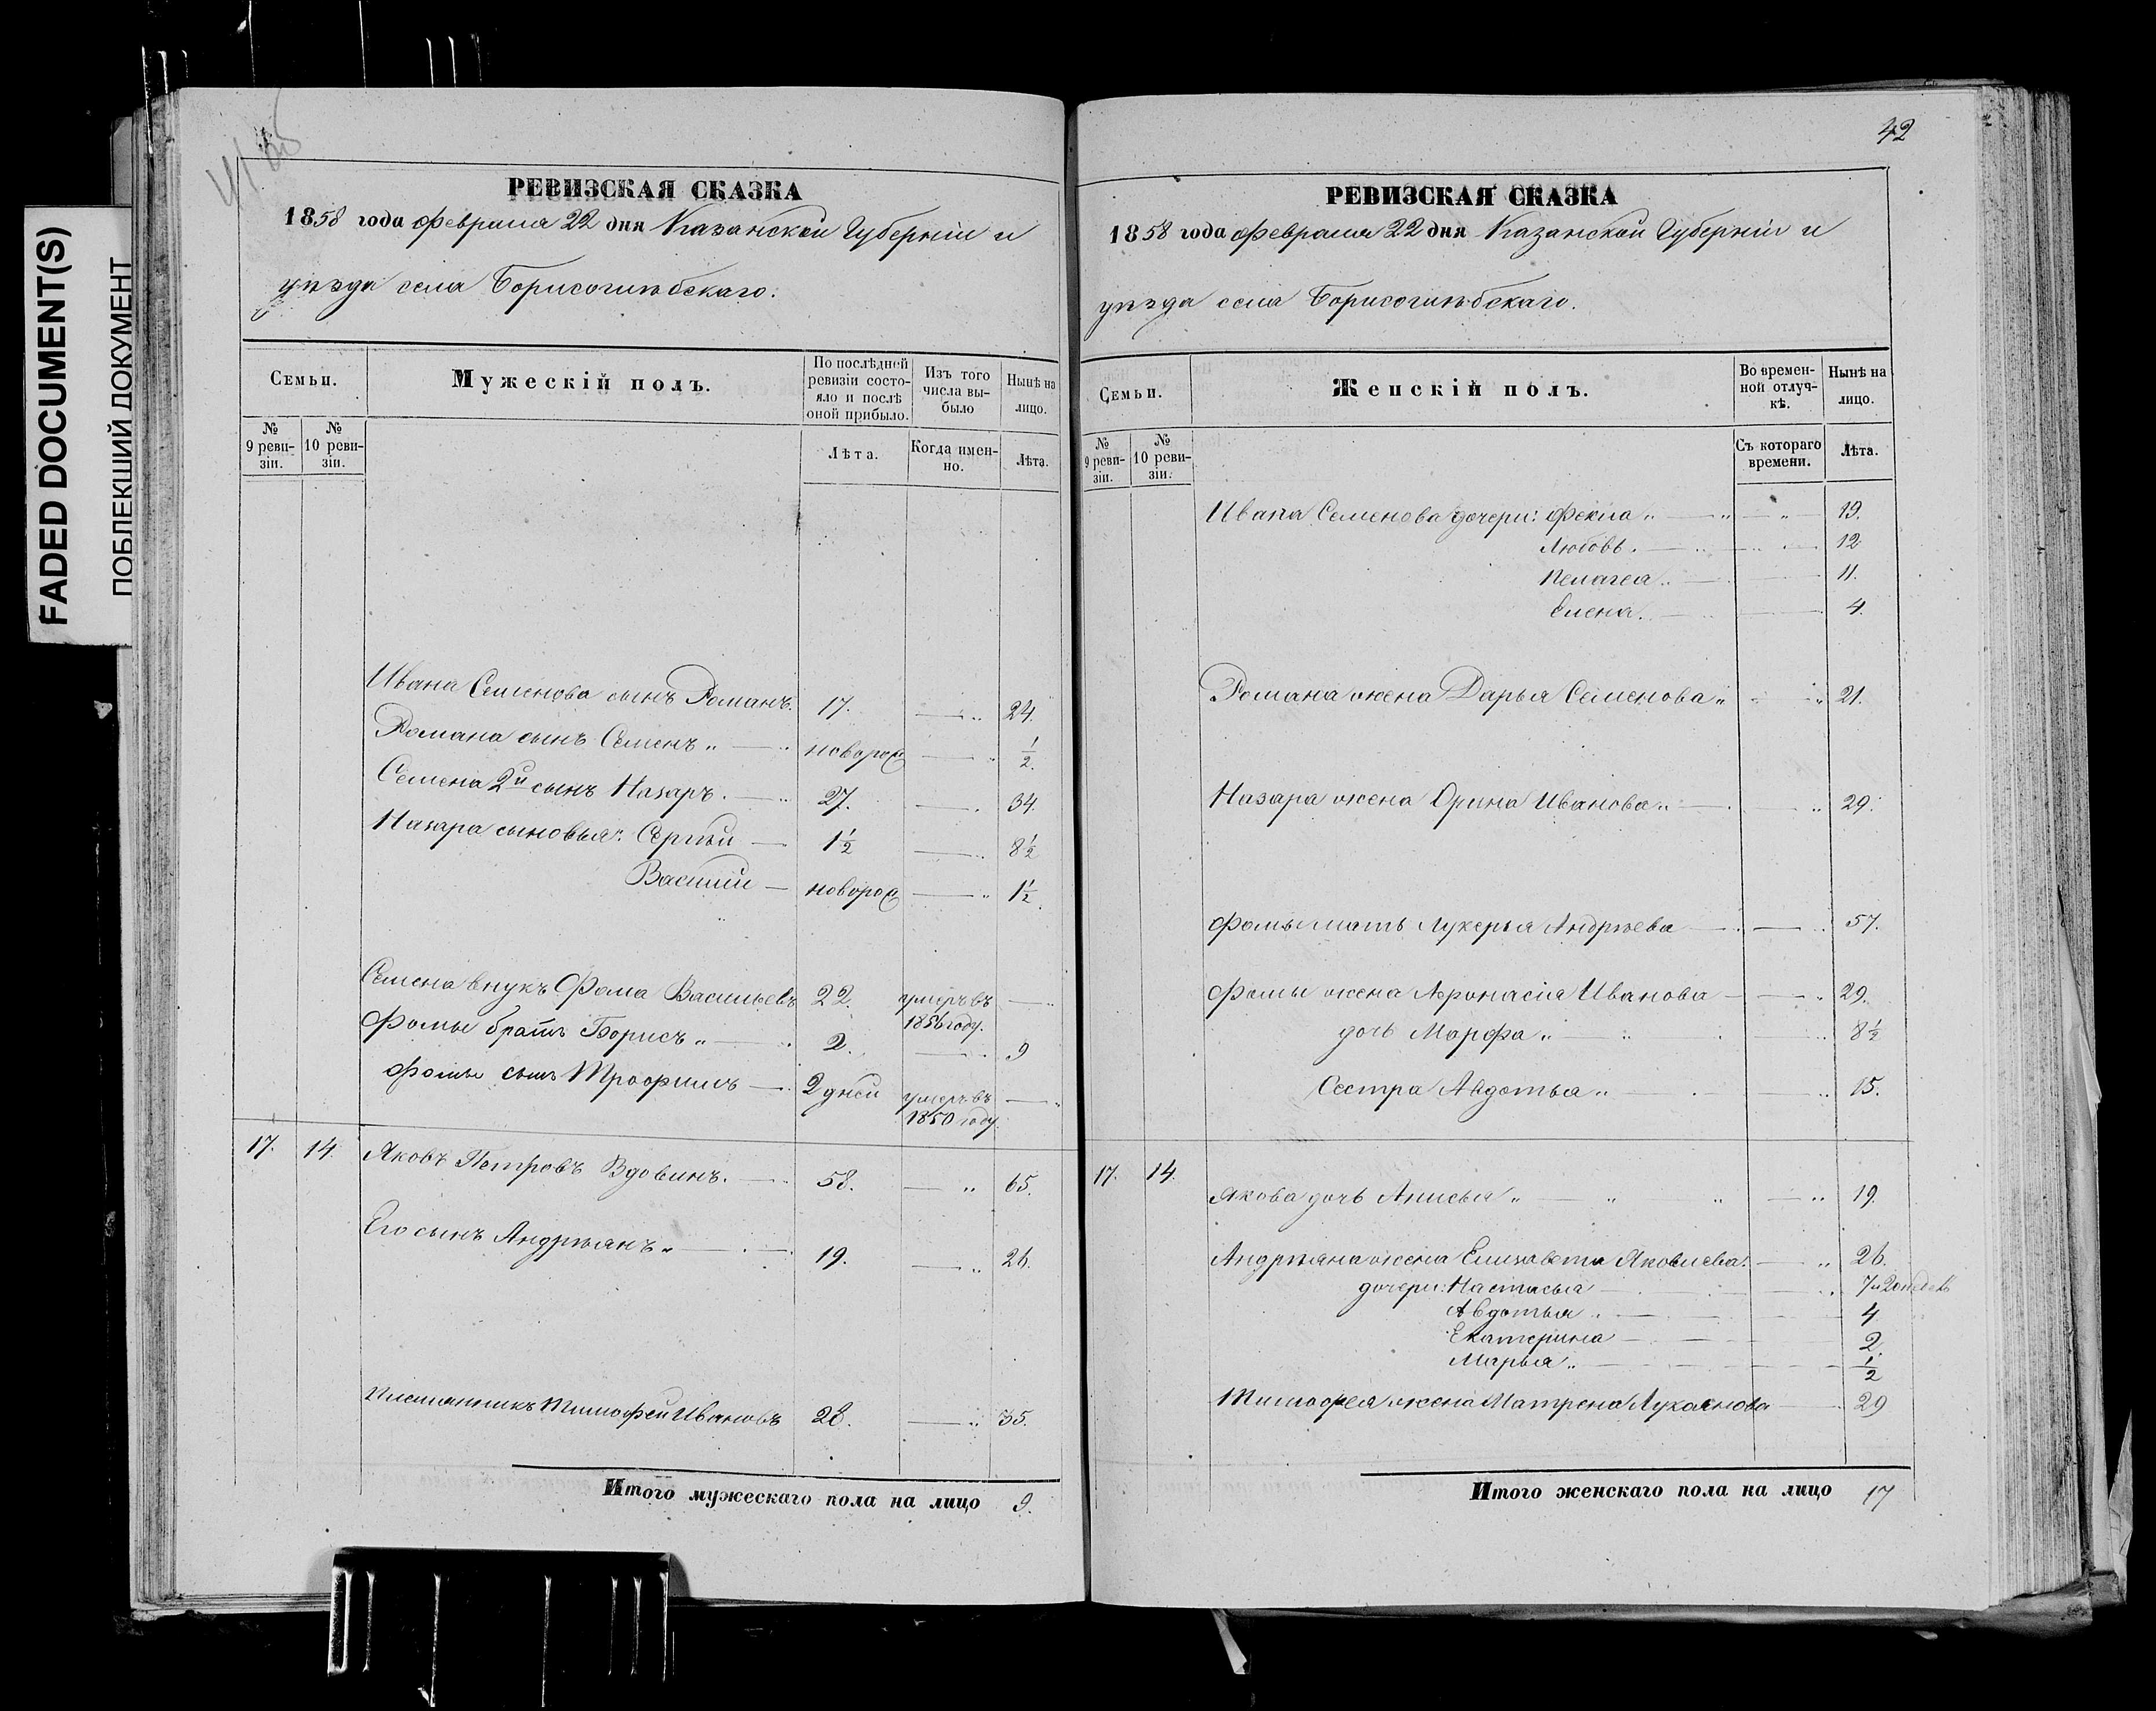 FADED DOCUMENT(S)
ПОБЛЕКШИЙ ДОКУМЕНТ
РЕВИЗСКАЯ СКАЗКА
1858 года Февраля 22 дня Казанской Губернiи и
уѣзда села Борисоглѣбскаго.
Семьи.
Мужескiй полъ.
По послѣдней ревизiи состо-яло и послѣ оной прибыло.
Изъ того числа вы-было
Нынѣ на лицо.
№ 9 реви-зiи.
№ 10 реви-зiи.
Лѣта.
Когда имен-но.
Лѣта.
Ивана Семенова сынъ Романъ. 17. 24.
Романа сынъ Семенъ " новорож 1/2.
Семена 2й сынъ Назаръ. 27. 34.
Назара сыновья: Сергѣй 1 1/2 8 1/2
Василiй новорож 1 1/2.
Семена внукъ Фома Васильевъ 22. умеръ въ 1856 году.
Фомы братъ Борисъ " 2. 9
Фомы сынъ Трофимъ 2 дней умеръ въ 1850 году
17. 14. Яковъ Петровъ Вдовинъ. 58. " 65.
Его сынъ Андрѣянъ " 19. " 26.
Племянникъ Тимофей Ивановъ 28. " 35.
Итого мужескаго пола на лицо 9.
42
РЕВИЗСКАЯ СКАЗКА
1858 года Февраля 22 дня Казанской Губернiи и
уѣзда села Борисоглѣбскаго.
Семьи.
Женскiй полъ.
Во времен-ной отлуч-кѣ.
Нынѣ на лицо.
№ 9 реви-зiи.
№ 10 реви-зiи.
Съ котораго времени.
Лѣта.
Ивана Семенова дочери: Фекла " 19.
Любовь. 12
Пелагея. 11.
Елена. 4.
Романа жена Дарья Семенова " 21.
Назара жена Орина Иванова " 29.
Фомы мать Лукерья Андрѣева 57.
Фомы жена Афонасiя Иванова 29.
дочь Марфа " 8 1/2
Сестра Авдотья " 15.
17. 14.
Якова дочь Анисья " 19.
Андрѣяна жена Елизавета Яковлева. " 26.
дочери: Настасья 7 и 2 недель
Авдотья 4
Екатерина 2.
Марья " 1/2
Тимофея жена Матрена Лукоянова 29
Итого женскаго пола на лицо 17